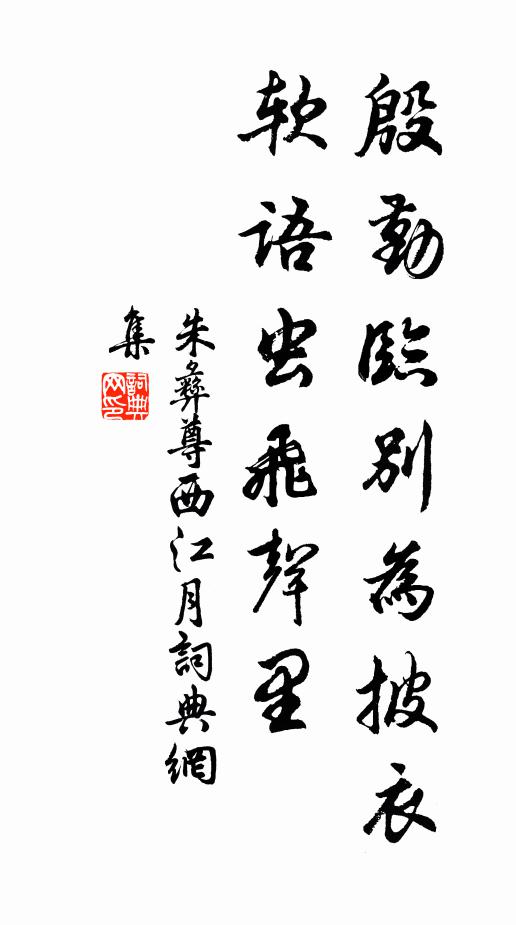 殷勤臨別為披衣
软語虫飛聲里
朱彝尊西江月詞典網
集
詞典
网印